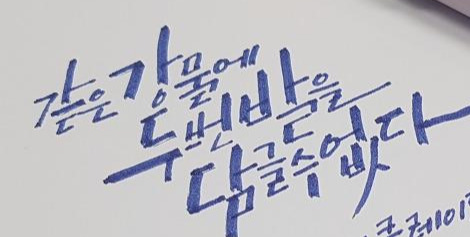 같은 강물에
두번 발을
담글수 없다